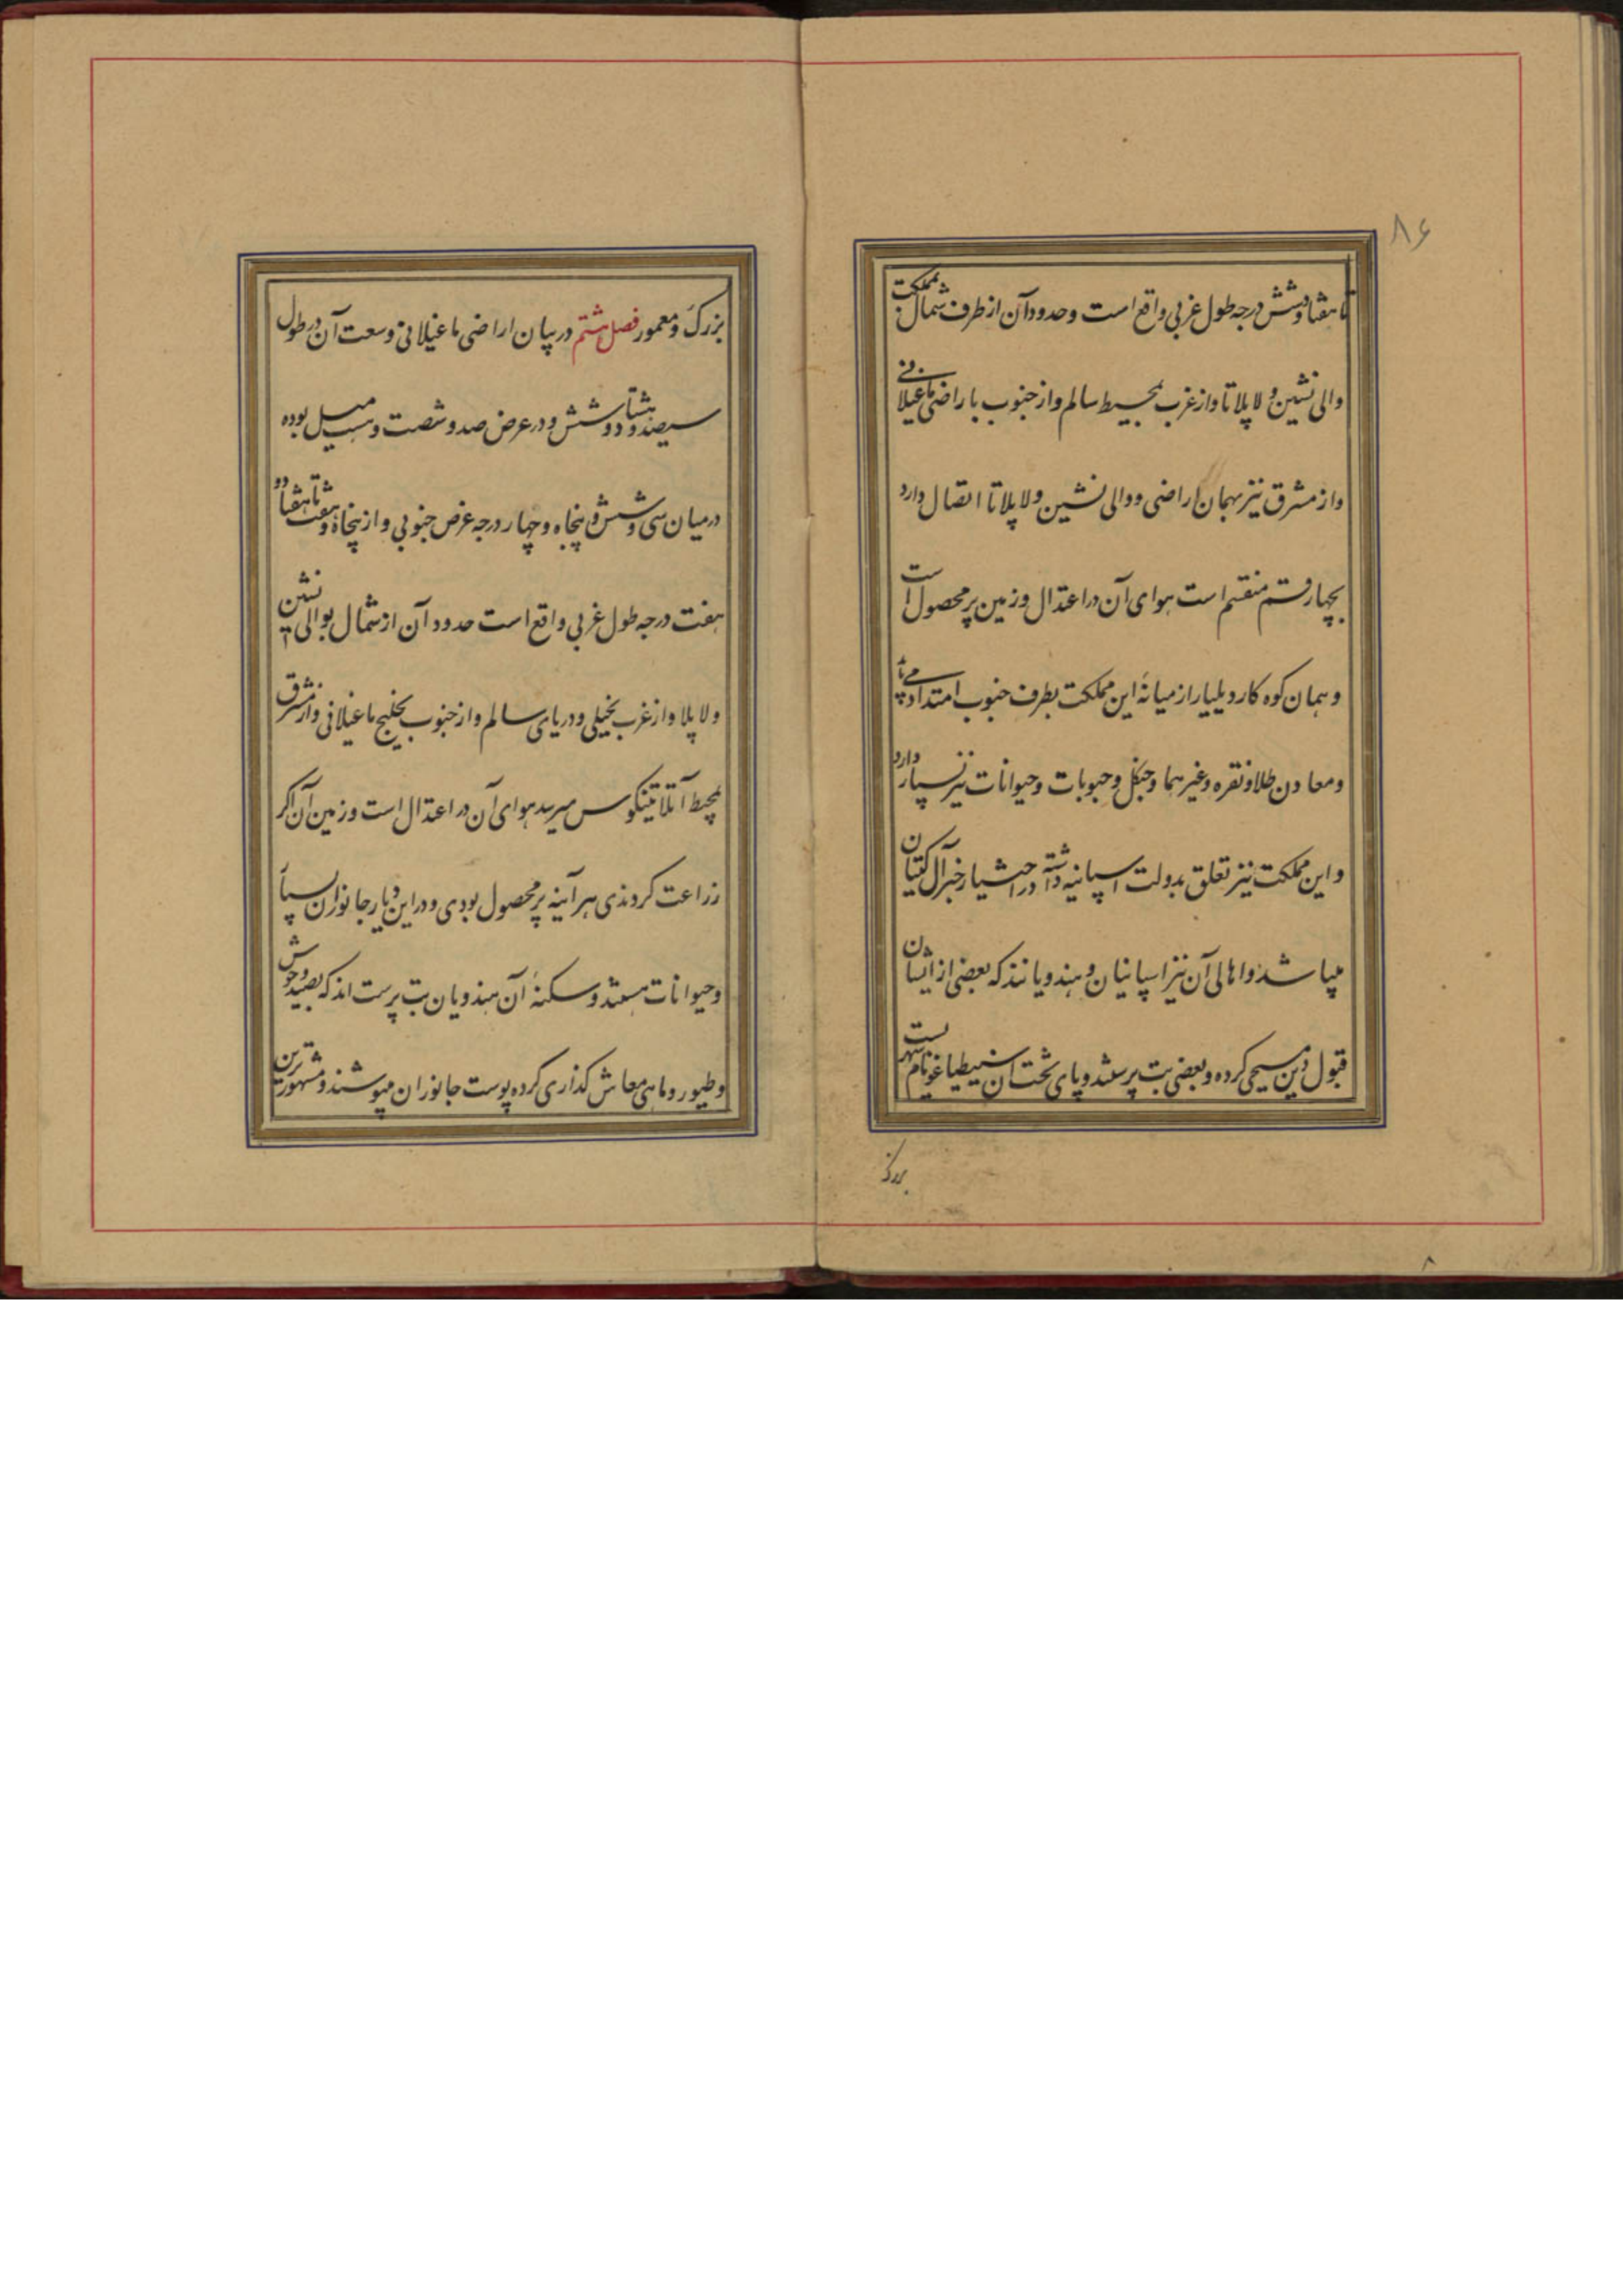 ۸۶
تا هفتاد و شش درجه طول غربی واقع است و حدود آن از طرف شمال بمملکت
والی نشین و لاپلاتا و از غرب بمحیط سالم و از جنوب با راضی ماغیلانی
و از مشرق نیز بهمان اراضی و والی نشین ولاپلاتا اتصال دارد
بچهار قسم منقسم است هوای آن در اعتدال و زمین پر محصول است
و همان کوه کاردیلیار از میانهٔ این مملکت بطرف جنوب امتداد می یابد
و معادن طلا و نقره و غیرهما و جنگل و حبوبات و حیوانات نیز بسیار دارد
و این مملکت نیز تعلق بدولت اسپانیه داشته در اختیار جنرال کپتیان
میباشد و اهالی آن نیز اسپانیان و هندویانند که بعضی از ایشان
قبول دین مسیحی کرده و بعضی بت پرستند و پای تخت آن سنطیاغو نام شهریست
بزرک
بزرک و معمور فصل هشتم در بیان اراضی ماغیلانی وسعت آن در طول
سیصد و هشتاد و شش و در عرض صد و شصت و سه میل بوده
درمیان سی و شش و پنجاه و چهار درجه عرض جنوبی و از پنجاه و هفت تا هفتاد و
هفت درجه طول غربی واقع است حدود آن از شمال بوالی نشین
ولاپلا و از غرب بخیلی و دریای سالم و از جنوب بخلیج ماغیلانی و از مشرق
بمحیط آتلانتیکوس میرسد هوای آن در اعتدال است و زمین آن اکر
زراعت کردندی هر آینه پر محصول بودی و در این دیار جانوران بسیار
و حیوانات هستند و سکنهٔ آن هندویان بت پرست اند که بصید وحوش
و طیور و ماهی معاش کذاری کرده پوست جانوران میپوشند و مشهورترین